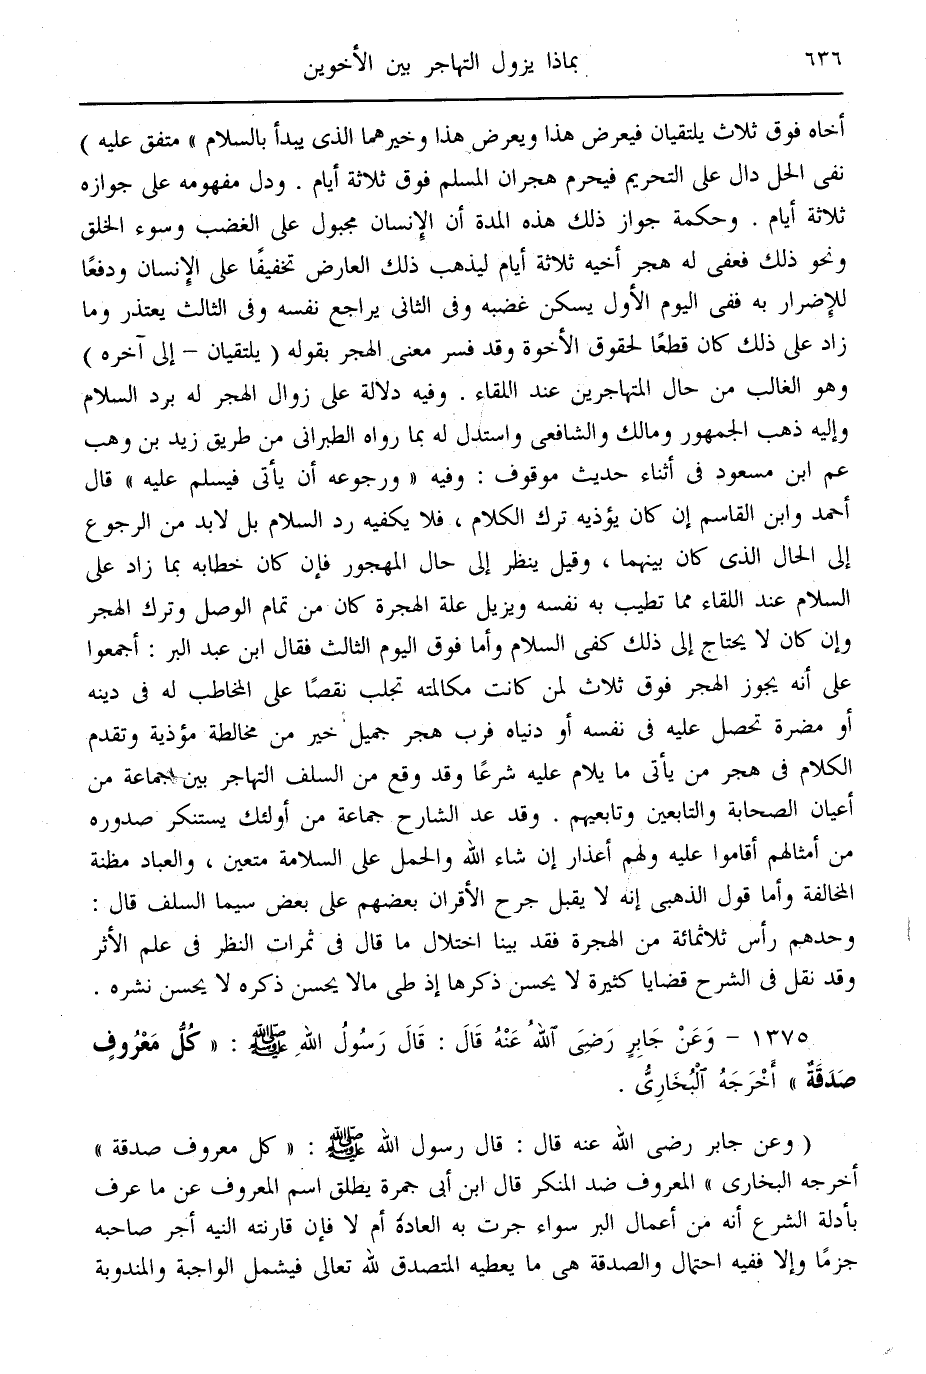 ٦٣٦
بماذا يزول التهاجر بين الأخوين
أخاه فوق ثلاث يلتقيان فيعرض هذا ويعرض هذا وخيرهما الذى يبدأ بالسلام » متفق عليه )
نفى الحل دال على التحريم فيحرم هجران المسلم فوق ثلاثة أيام . ودل مفهومه على جوازه
ثلاثة أيام . وحكمة جواز ذلك هذه المدة أن الإنسان مجبول على الغضب وسوء الخلق
ونحو ذلك فعفى له هجر أخيه ثلاثة أيام ليذهب ذلك العارض تخفيفًا على الإنسان ودفعًا
للإضرار به ففى اليوم الأول يسكن غضبه وفى الثانى يراجع نفسه وفى الثالث يعتذر وما
زاد على ذلك كان قطعًا لحقوق الأخوة وقد فسر معنى الهجر بقوله ( يلتقيان – إلى آخره )
وهو الغالب من حال المتهاجرين عند اللقاء . وفيه دلالة على زوال الهجر له برد السلام
وإليه ذهب الجمهور ومالك والشافعى واستدل له بما رواه الطبرانى من طريق زيد بن وهب
عم ابن مسعود فى أثناء حديث موقوف : وفيه « ورجوعه أن يأتى فيسلم عليه » قال
أحمد وابن القاسم إن كان يؤذيه ترك الكلام ، فلا يكفيه رد السلام بل لابد من الرجوع
إلى الحال الذى كان بينهما ، وقيل ينظر إلى حال المهجور فإن كان خطابه بما زاد على
السلام عند اللقاء مما تطيب به نفسه ويزيل علة الهجرة كان من تمام الوصل وترك الهجر
وإن كان لا يحتاج إلى ذلك كفى السلام وأما فوق اليوم الثالث فقال ابن عبد البر : أجمعوا
على أنه يجوز الهجر فوق ثلاث لمن كانت مكالمته تجلب نقصًا على المخاطب له فى دينه
أو مضرة تحصل عليه فى نفسه أو دنياه فرب هجر جميل خير من مخالطة مؤذية وتقدم
الكلام فى هجر من يأتى ما يلام عليه شرعًا وقد وقع من السلف التهاجر بين جماعة من
أعيان الصحابة والتابعين وتابعيهم . وقد عد الشارح جماعة من أولئك يستنكر صدوره
من أمثالهم أقاموا عليه ولهم أعذار إن شاء الله والحمل على السلامة متعين ، والعباد مظنة
المخالفة وأما قول الذهبى إنه لا يقبل جرح الأقران بعضهم على بعض سيما السلف قال :
وحدهم رأس ثلاثمائة من الهجرة فقد بينا اختلال ما قال فى ثمرات النظر فى علم الأثر
وقد نقل فى الشرح قضايا كثيرة لا يحسن ذكرها إذ طى مالا يحسن ذكره لا يحسن نشره .
١٣٧٥ – وَعَنْ جَابِرٍ رَضِىَ ٱللهُ عَنْهُ قَالَ : قَالَ رَسُولُ اللهِ ﷺ : « كُلُّ مَعْرُوفٍ
صَدَقَةٌ » أَخْرَجَهُ ٱلْبُخَارِىُّ .
( وعن جابر رضى الله عنه قال : قال رسول الله ﷺ : « كل معروف صدقة »
أخرجه البخارى » المعروف ضد المنكر قال ابن أبى جمرة يطلق اسم المعروف عن ما عرف
بأدلة الشرع أنه من أعمال البر سواء جرت به العادة أم لا فإن قارنته النيه أجر صاحبه
جزمًا وإلا ففيه احتمال والصدقة هى ما يعطيه المتصدق لله تعالى فيشمل الواجبة والمندوبة